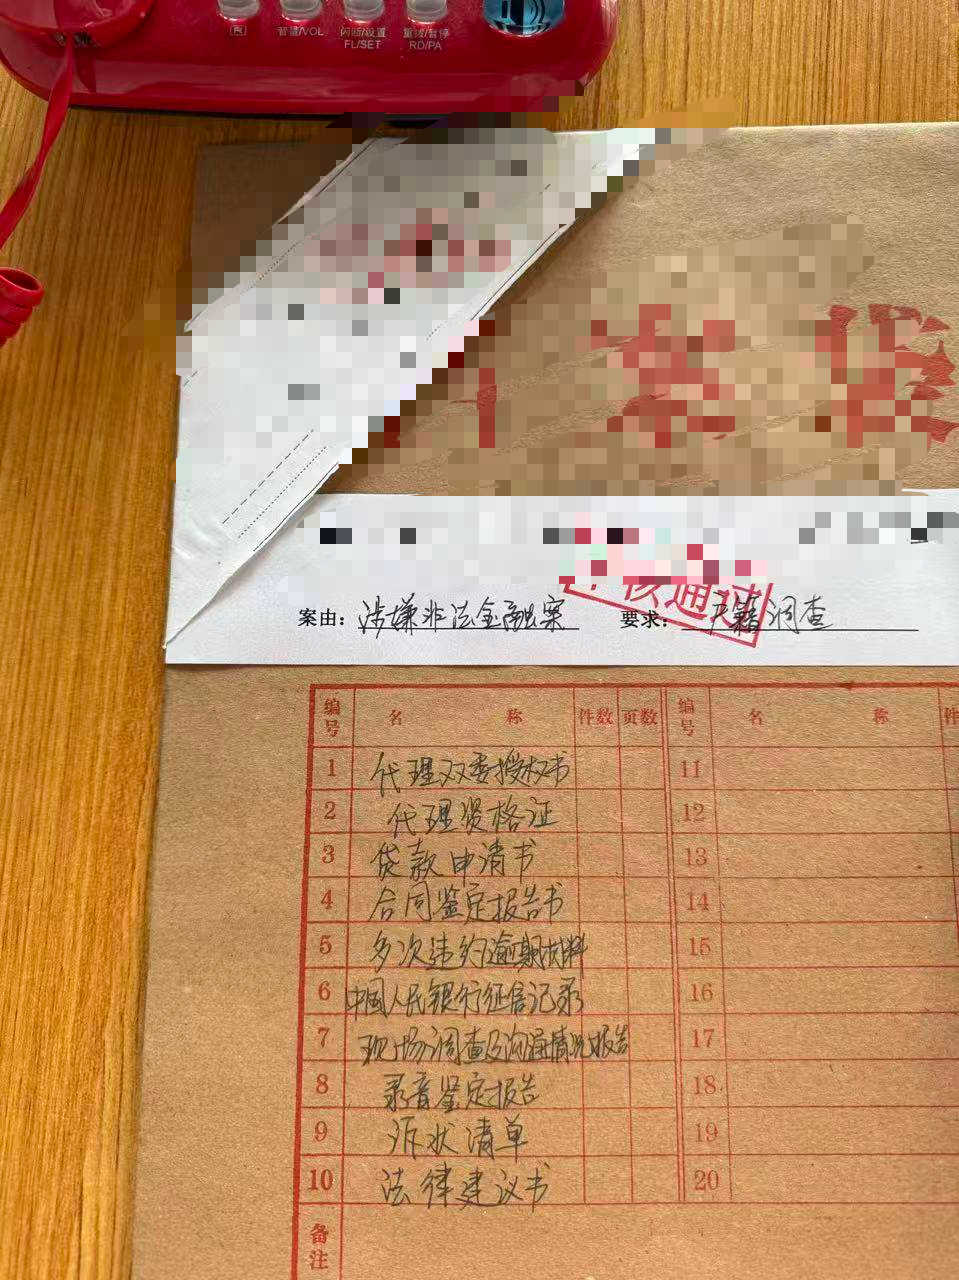 音量/VOL
闪断/设置
FL/SET
重拨/暂停
RD/PA
核通过
案由：涉嫌非法金融案 要求：户籍调查
编号 名 称 件数 页数 编号 名 称 件
1 代理双委授权书 11
2 代理资格证 12
3 贷款申请书 13
4 合同鉴定报告书 14
5 多次违约逾期材料 15
6 中国人民银行征信记录 16
7 现场调查及沟通情况报告 17
8 录音鉴定报告 18
9 诉状清单 19
10 法律建议书 20
备注